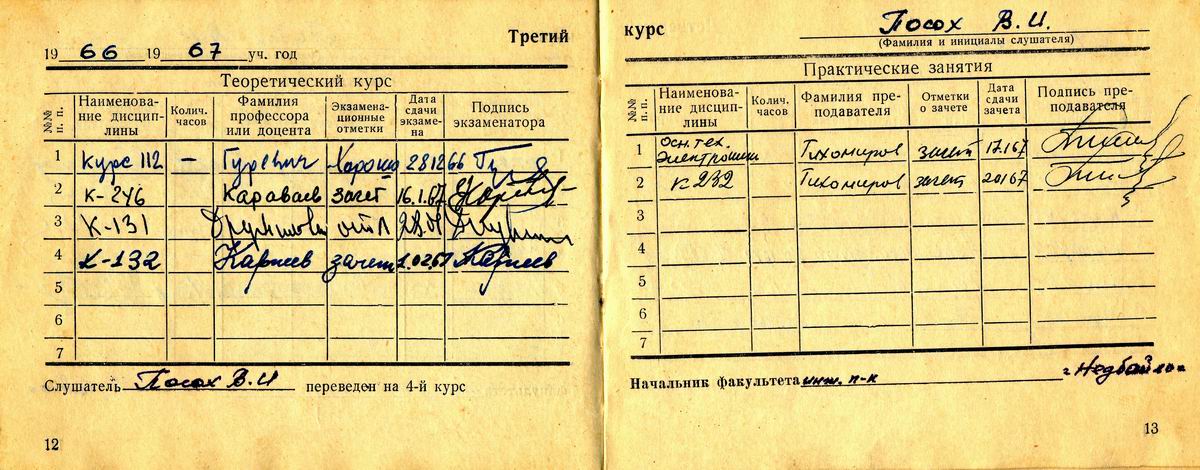 Третий
19 66 19 67 уч. год
Теоретический курс
№№ п. п. Наименова-ние дисцип-лины Колич. часов Фамилия профессора или доцента Экзамена-ционные отметки Дата сдачи экзаме-на Подпись экзаменатора
1 Курс 112 — Гуревич Хорошо 28 12 66
2 К-246 Караваев зачет 16.1.67
3 К-131 отл
4 К-132 Карпеев зачет 1.02.67 Карпеев
5
6
7
Слушатель Посох В.И переведен на 4-й курс
12
курс Посох В.И.
(Фамилия и инициалы слушателя)
Практические занятия
№№ п. п. Наименова-ние дисцип-лины Колич. часов Фамилия пре-подавателя Отметки о зачете Дата сдачи зачета Подпись пре-подавателя
1 Осн. тех. электроники Тихомиров зачет 17.1.67
2 К 232 Тихомиров зачет 20 1 67
3
4
5
6
7
Начальник факультета инж. п-к г Недбайло
13